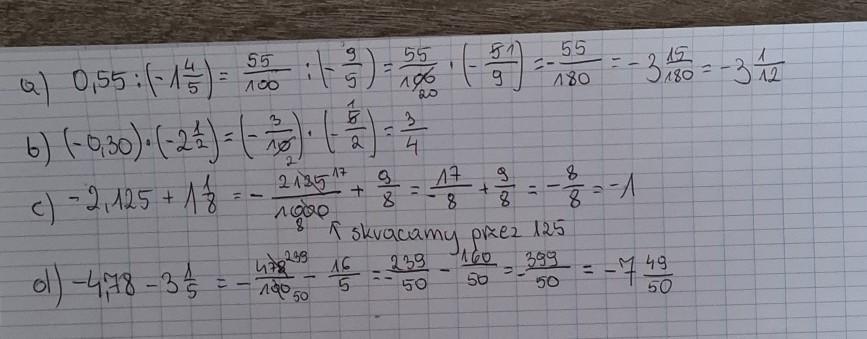 a) 0,55 : (-1 4/5) = 55/100 : (-9/5) = 55/100 20 · (-5 1/9) = -55/180 = -3 15/180 = -3 1/12
b) (-0,30) · (-2 1/2) = (-3/10 2) · (-5 1/2) = 3/4
c) -2,125 + 1 1/8 = -2125 17/1000 8 + 9/8 = -17/8 + 9/8 = -8/8 = -1
↑ skracamy przez 125
d) -4,78 - 3 1/5 = -478 239/100 50 - 16/5 = -239/50 - 160/50 = -399/50 = -7 49/50